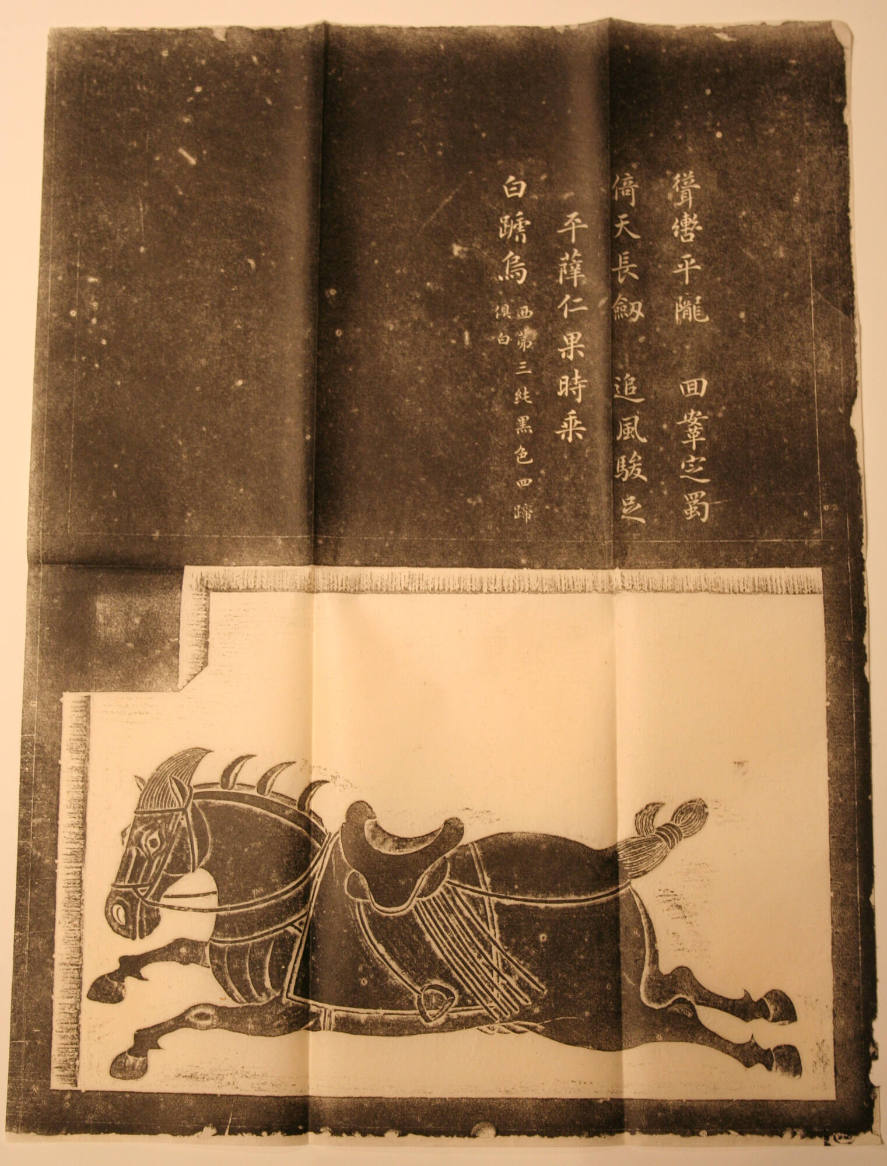 白蹏烏
西第三純黑色四蹄
俱白
平薛仁果時乘
倚天長劔 追風駿足
聳轡平隴 囬鞌定蜀